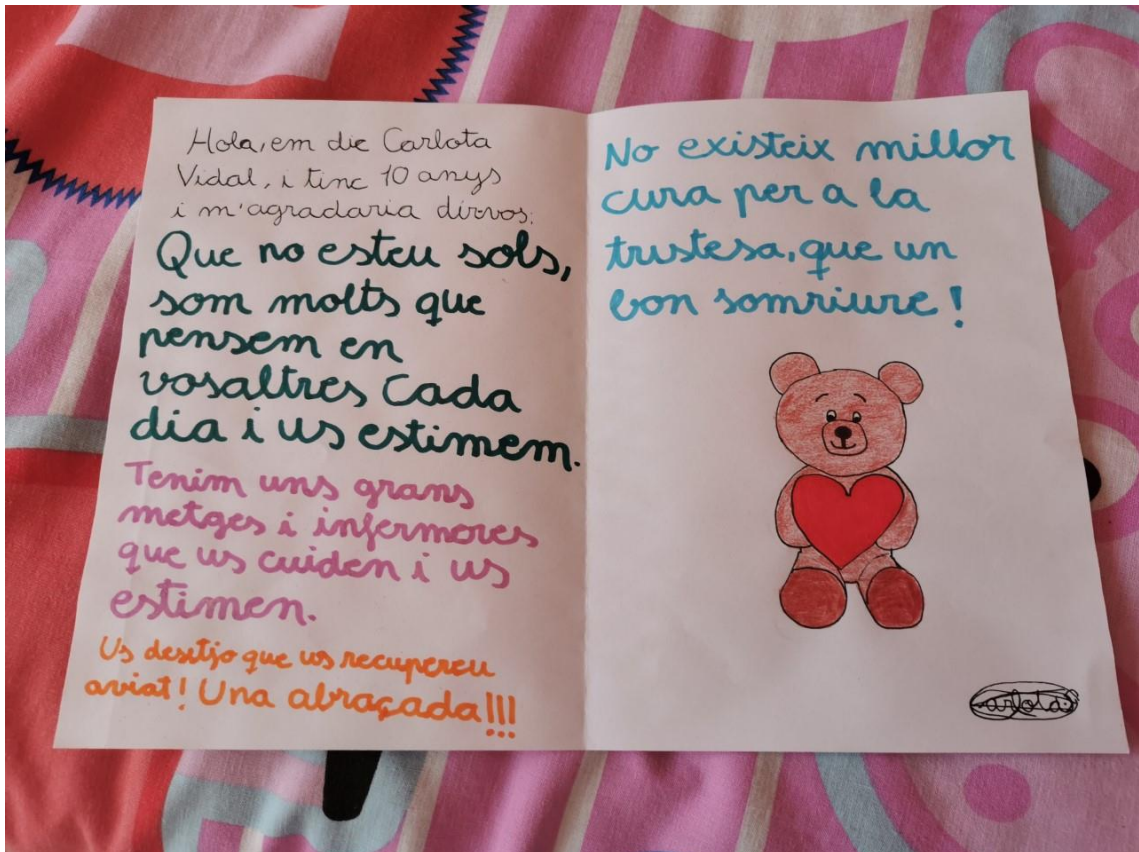 Hola, em dic Carlota
Vidal, i tinc 10 anys
i m'agradaria dirvos:
Que no esteu sols,
som molts que
pensem en
vosaltres cada
dia i us estimem.
Tenim uns grans
metges i infermeres
que us cuiden i us
estimen.
Us desitjo que us recupereu
aviat! Una abraçada!!!
No existeix millor
cura per a la
tristesa, que un
bon somriure!
Carlota